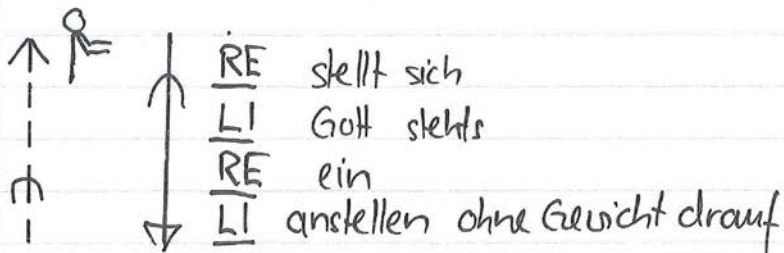 RE stellt sich
LI Gott stehts
RE ein
LI anstellen ohne Gewicht drauf